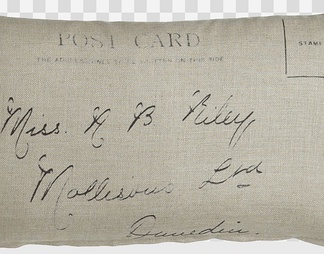 POST CARD
THE ADDRESS ONLY TO BE WRITTEN ON THIS SIDE
STAMP
Miss. H B Riley
Mollisons Ltd
Dunedin.